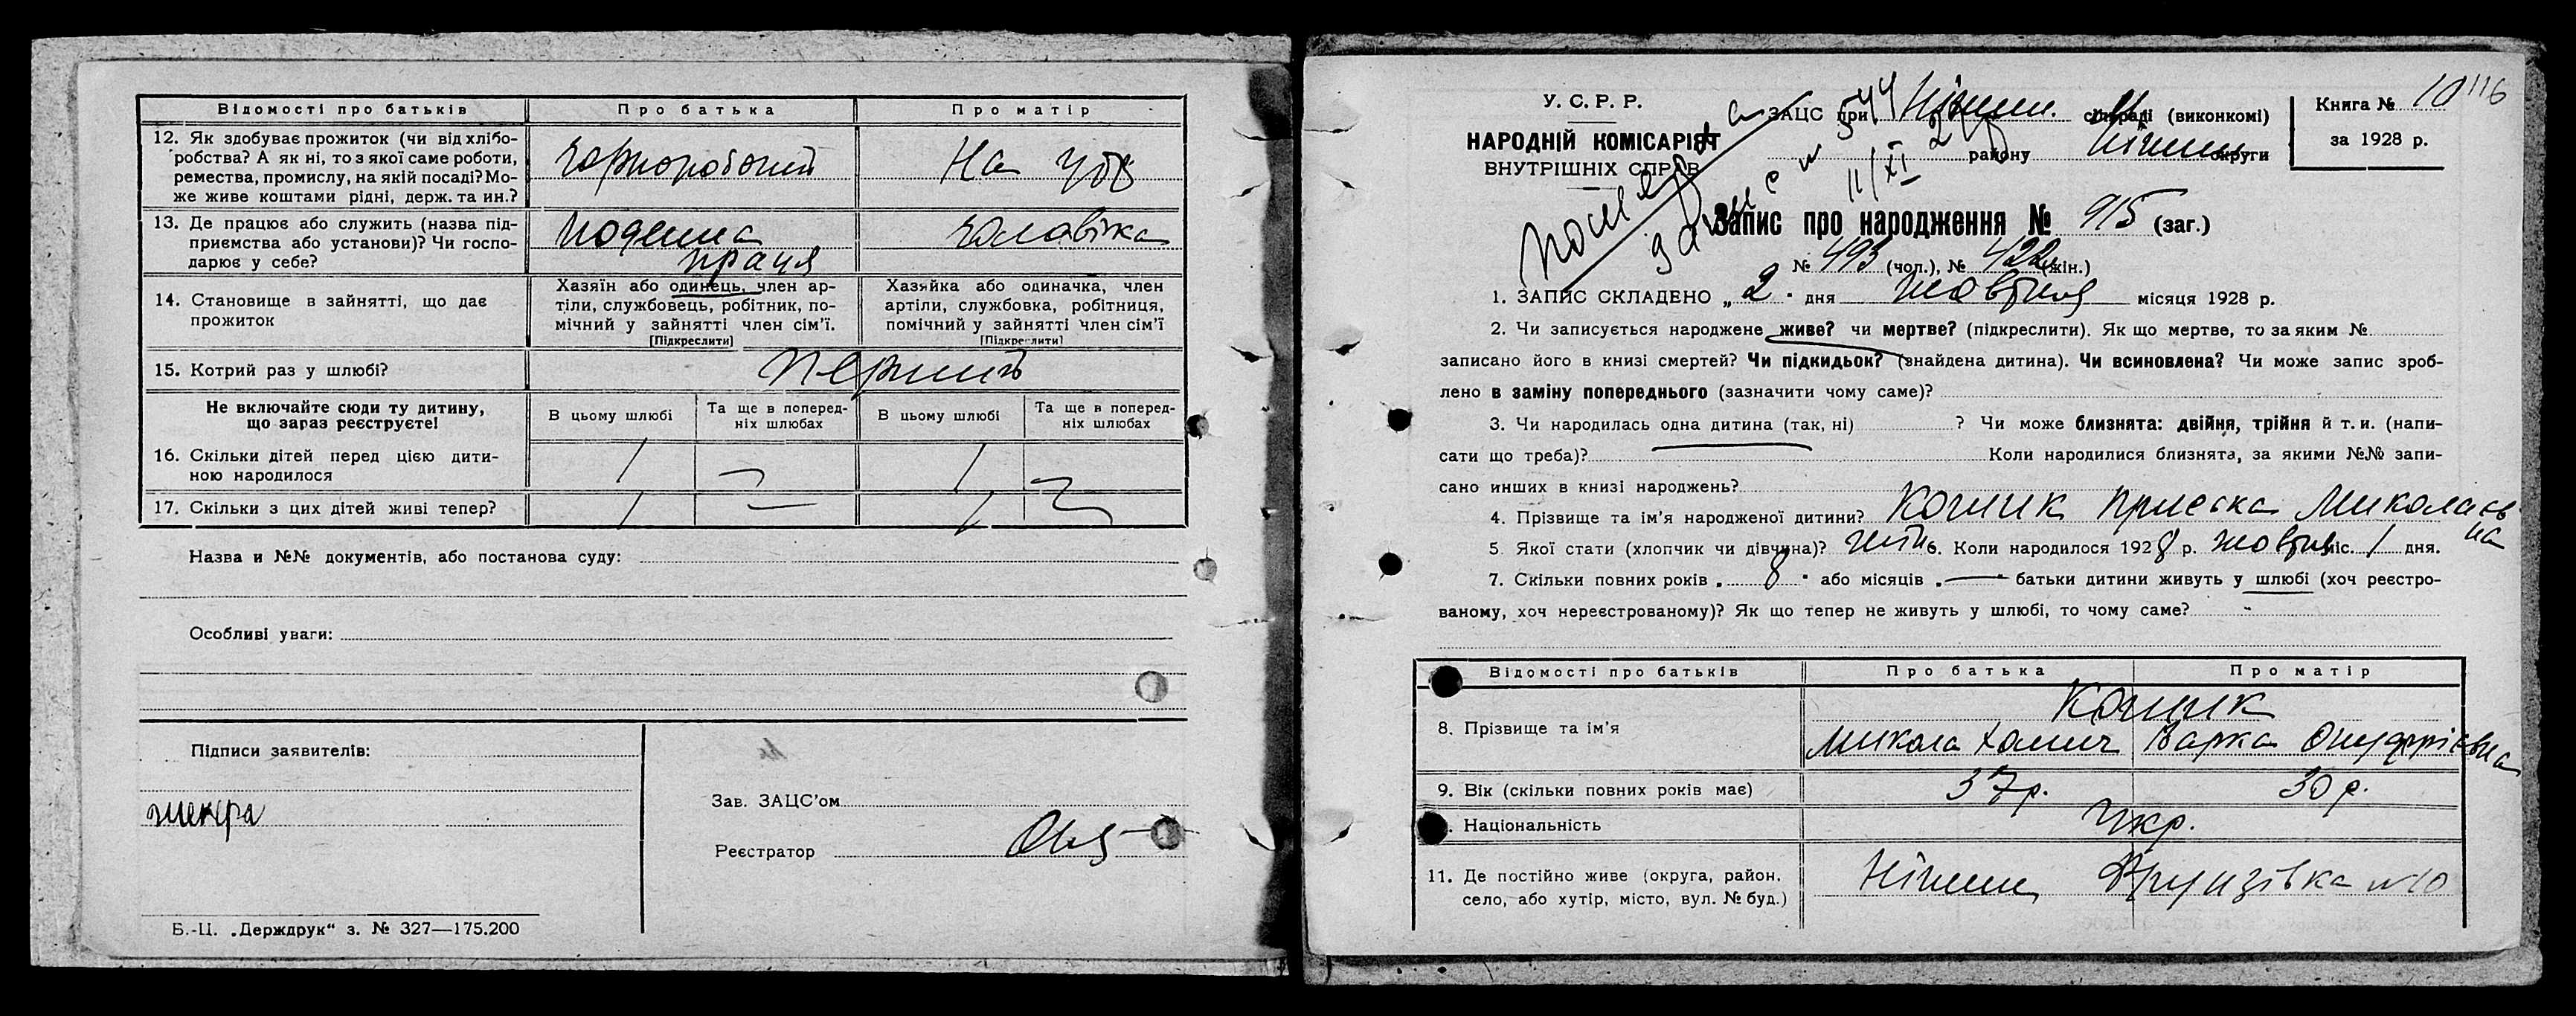 Відомості про батьків
Про батька
Про матір
12. Як здобуває прожиток (чи від хлібо-
робства? А як ні, то з якої саме роботи,
ремества, промислу, на якій посаді? Мо-
же живе коштами рідні, держ. та ин.?
Чорноробочий
На утр
13. Де працює або служить (назва під-
приємства або установи)? Чи госпо-
дарює у себе?
Поденна
праця
Чоловіка
14. Становище в зайнятті, що дає
прожиток
Хазяїн або одинець, член ар-
тіли, службовець, робітник, по-
мічний у зайнятті член сім'ї.
[Підкреслити]
Хазяйка або одиначка, член
артіли, службовка, робітниця,
помічний у зайнятті член сім'ї
[Підкреслити]
15. Котрий раз у шлюбі?
Перший
Не включайте сюди ту дитину,
що зараз реєструєте!
В цьому шлюбі
Та ще в поперед-
ніх шлюбах
В цьому шлюбі
Та ще в поперед-
ніх шлюбах
16. Скільки дітей перед цією дити-
ною народилося
1 — 1 —
17. Скільки з цих дітей живі тепер?
1 — 1 —
Назва и №№ документів, або постанова суду:
Особливі уваги:
Підписи заявителів:
Зав. ЗАЦС'ом
Реєстратор
Б.-Ц. „Держдрук“ з. № 327—175.200
У. С. Р. Р.
НАРОДНІЙ КОМІСАРІЯТ
ВНУТРІШНІХ СПРАВ
ЗАЦС при Ніжин. сільраді (виконкомі)
району Ніжин округи
544
11/XI
Книга № 10
за 1928 р.
116
Запис про народження № 915 (заг.)
№ 493 (чол.), № 422 (жін.)
1. ЗАПИС СКЛАДЕНО „2“ дня жовтня місяця 1928 р.
2. Чи записується народжене живе? чи мертве? (підкреслити). Як що мертве, то за яким №
записано його в книзі смертей? Чи підкидьок? (знайдена дитина). Чи всиновлена? Чи може запис зроб-
лено в заміну попереднього (зазначити чому саме)?
3. Чи народилась одна дитина (так, ні) ? Чи може близнята: двійня, трійня й т. и. (напи-
сати що треба)? Коли народилися близнята, за якими №№ запи-
сано инших в книзі народжень?
4. Прізвище та ім'я народженої дитини? Миколаєв
на
5. Якої стати (хлопчик чи дівчина)? жін 6. Коли народилося 1928 р. жовтня міс. 1 дня.
7. Скільки повних років „8“ або місяців „—“ батьки дитини живуть у шлюбі (хоч реєстро-
ваному, хоч нереєстрованому)? Як що тепер не живуть у шлюбі, то чому саме?
Відомості про батьків
Про батька
Про матір
8. Прізвище та ім'я
Микола Хомич
Варка Онуфріївна
9. Вік (скільки повних років має)
37 р.
30 р.
Національність
Укр.
11. Де постійно живе (округа, район,
село, або хутір, місто, вул. № буд.)
Ніжин Фрунзівка №10